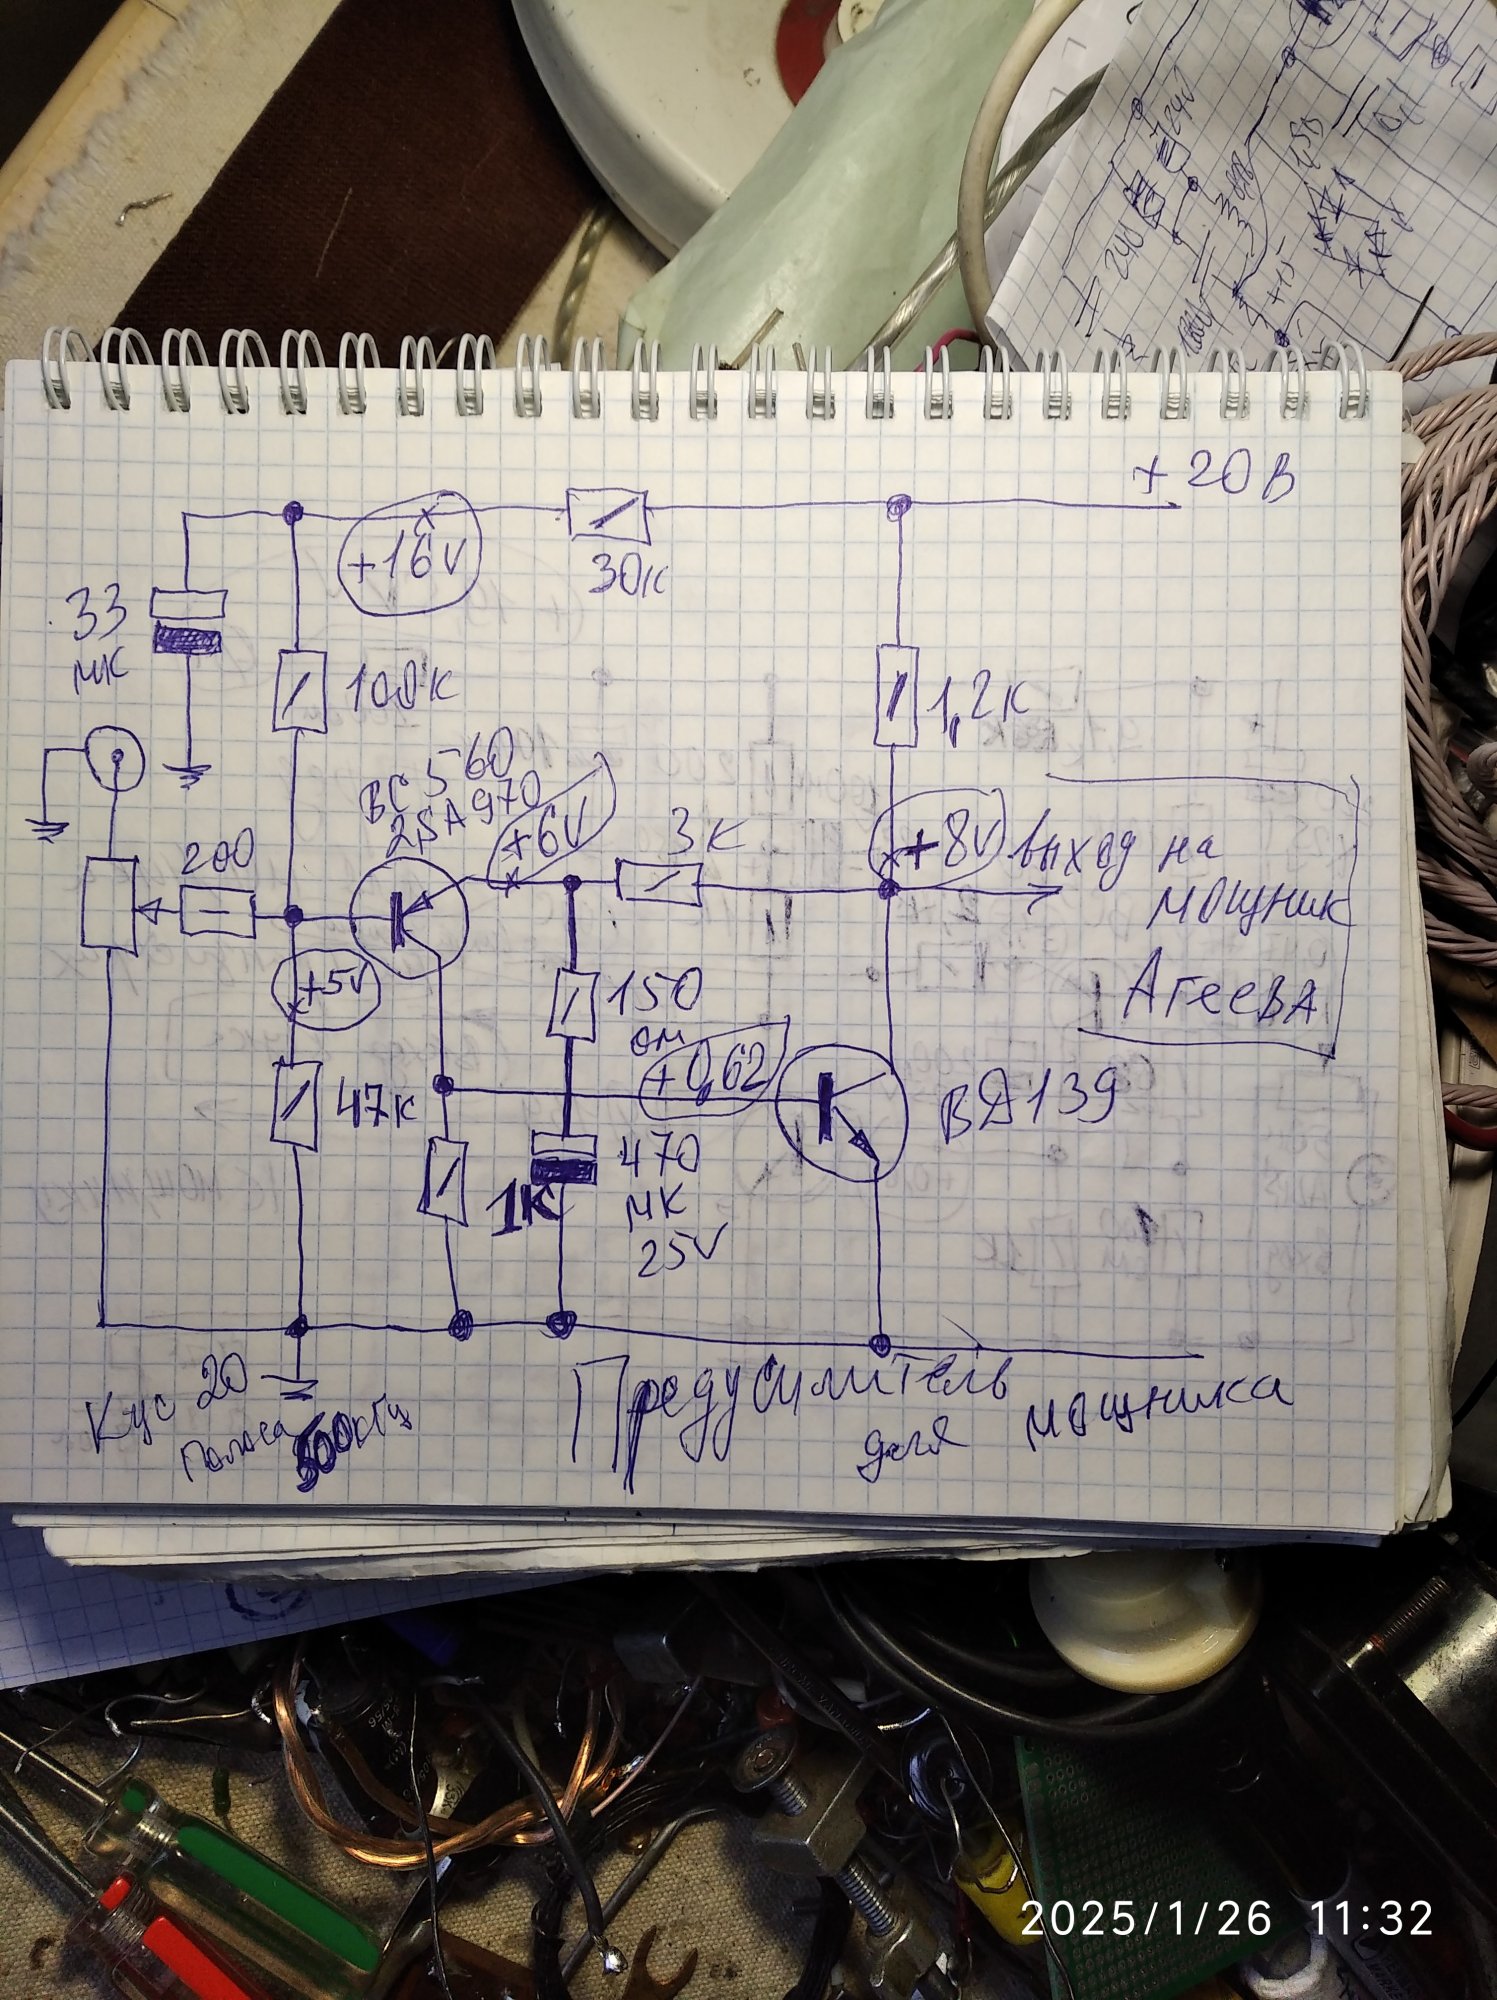 + 20 В
+16V
30К
33
МК
100К
1,2К
ВС 560
2SA970
+6V
3К
+8V
выход на
мощник
Агеева
200
+5V
150
ом
+0,62
ВД139
47К
1К
470
МК
25V
Кус 20
Полоса 500кГц
Предусилитель
для
мощника
240
240
+15
2025/1/26 11:32